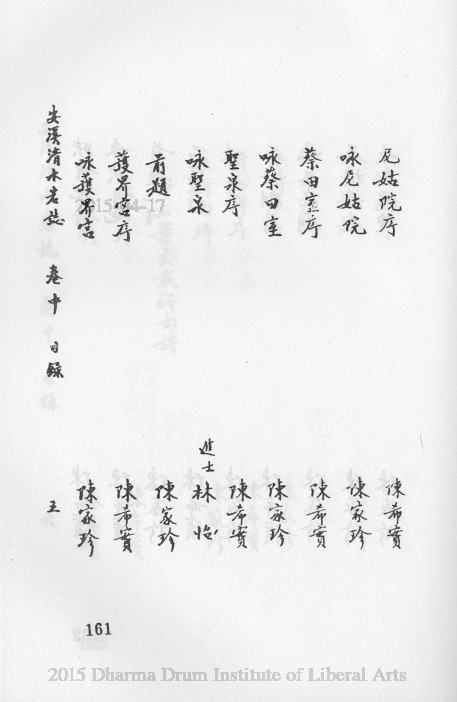 尼姑院序 陳希實
咏尼姑院 陳家珍
蔡田室序 陳希實
咏蔡田室 陳家珍
聖泉序 陳希實
咏聖泉 進士 林怡
前題 陳家珍
護界宮序 陳希實
咏護界宮 陳家珍
安溪清水岩誌 卷中 目錄 五
161
2015 Dharma Drum Institute of Liberal Arts